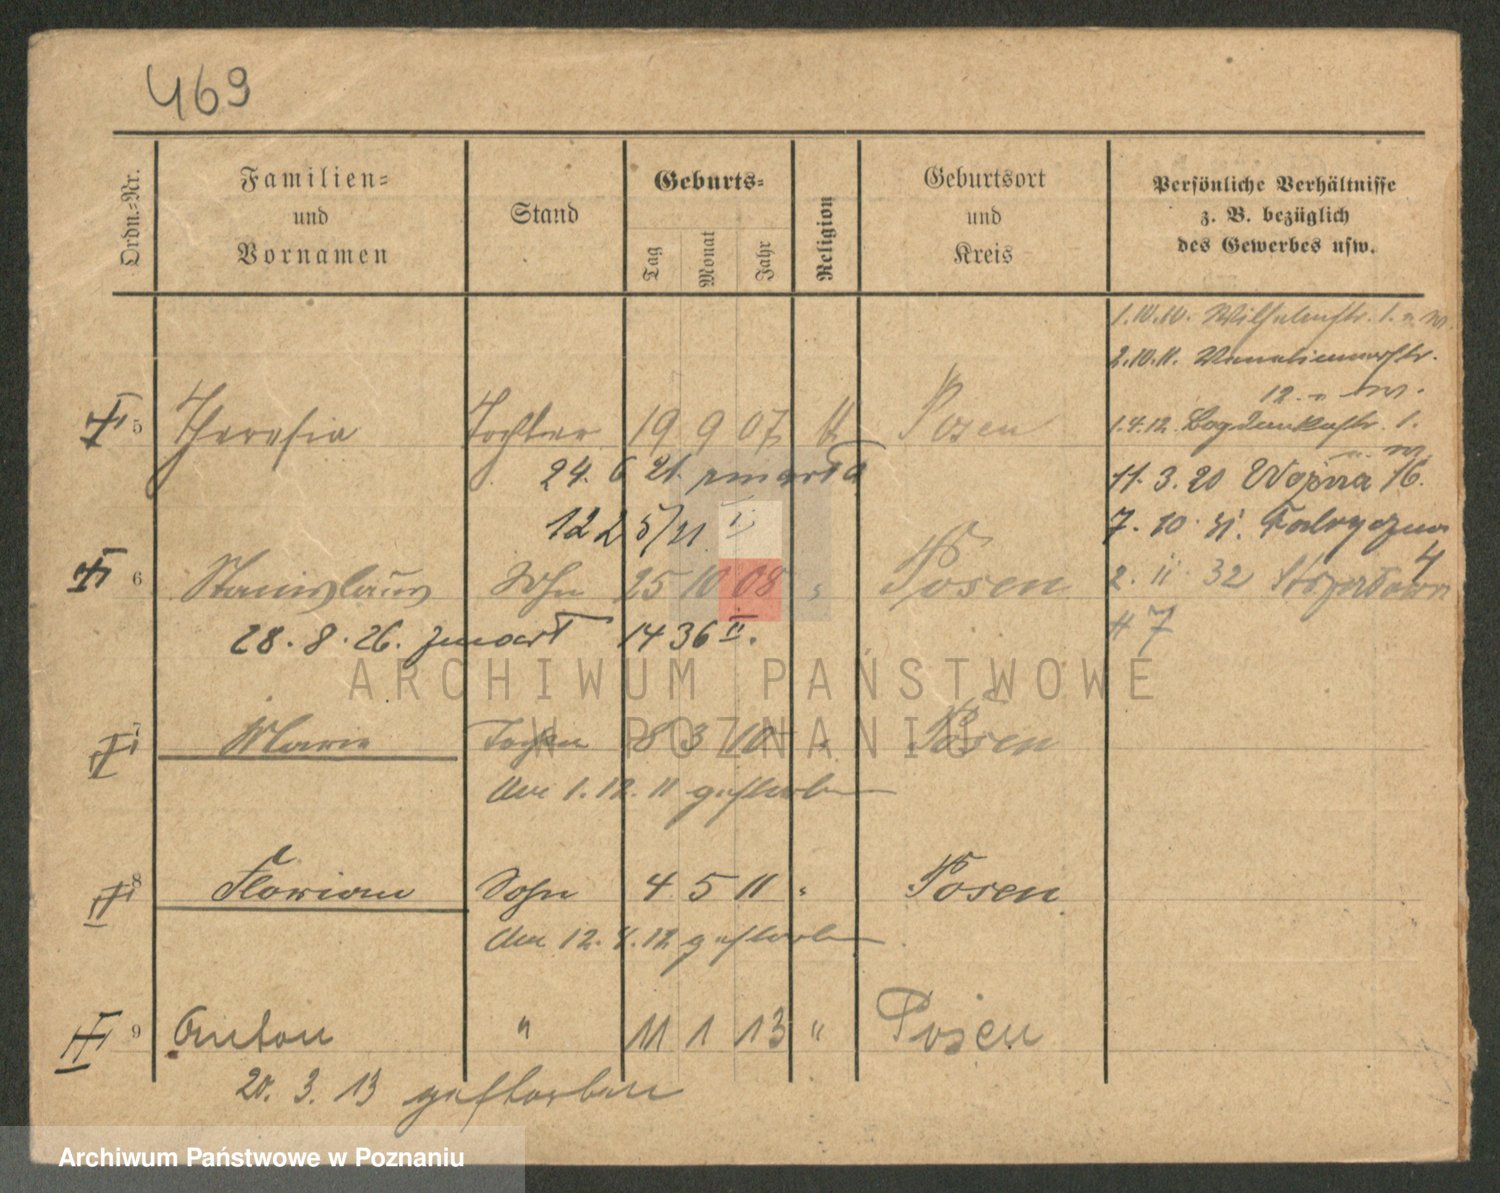 469
Ordn.-Nr.
Familien-
und
Vornamen
Stand
Geburts-
Tag
Monat
Jahr
Religion
Geburtsort
und
Kreis
Persönliche Verhältnisse
z. B. bezüglich
des Gewerbes usw.
1.10.10. Wilhelmstr. 1.
2.10.11.
12
5 Theresia Tochter 19 9 07 Posen
1.4.12 Bogdankastr. 1.
24. 6 21. zmarła
11. 3. 20 Woźna 16.
12 2 5/21 I
7. 10. 21. Fabryczna
4
6 Stanislaus Sohn 25 10 08 " Posen
2. 11. 32
28. 8. 26. zmarł 1436 II.
# 7
ARCHIWUM PAŃSTWOWE
W POZNANIU
7 Marie Tochter 8 3 10 " Posen
den 1.12.11 gestorben
8 Florian Sohn 4 5 11 " Posen
den 12. 4. 12 gestorben
9 Anton " 11 1 13 " Posen
20. 3. 13 gestorben
Archiwum Państwowe w Poznaniu